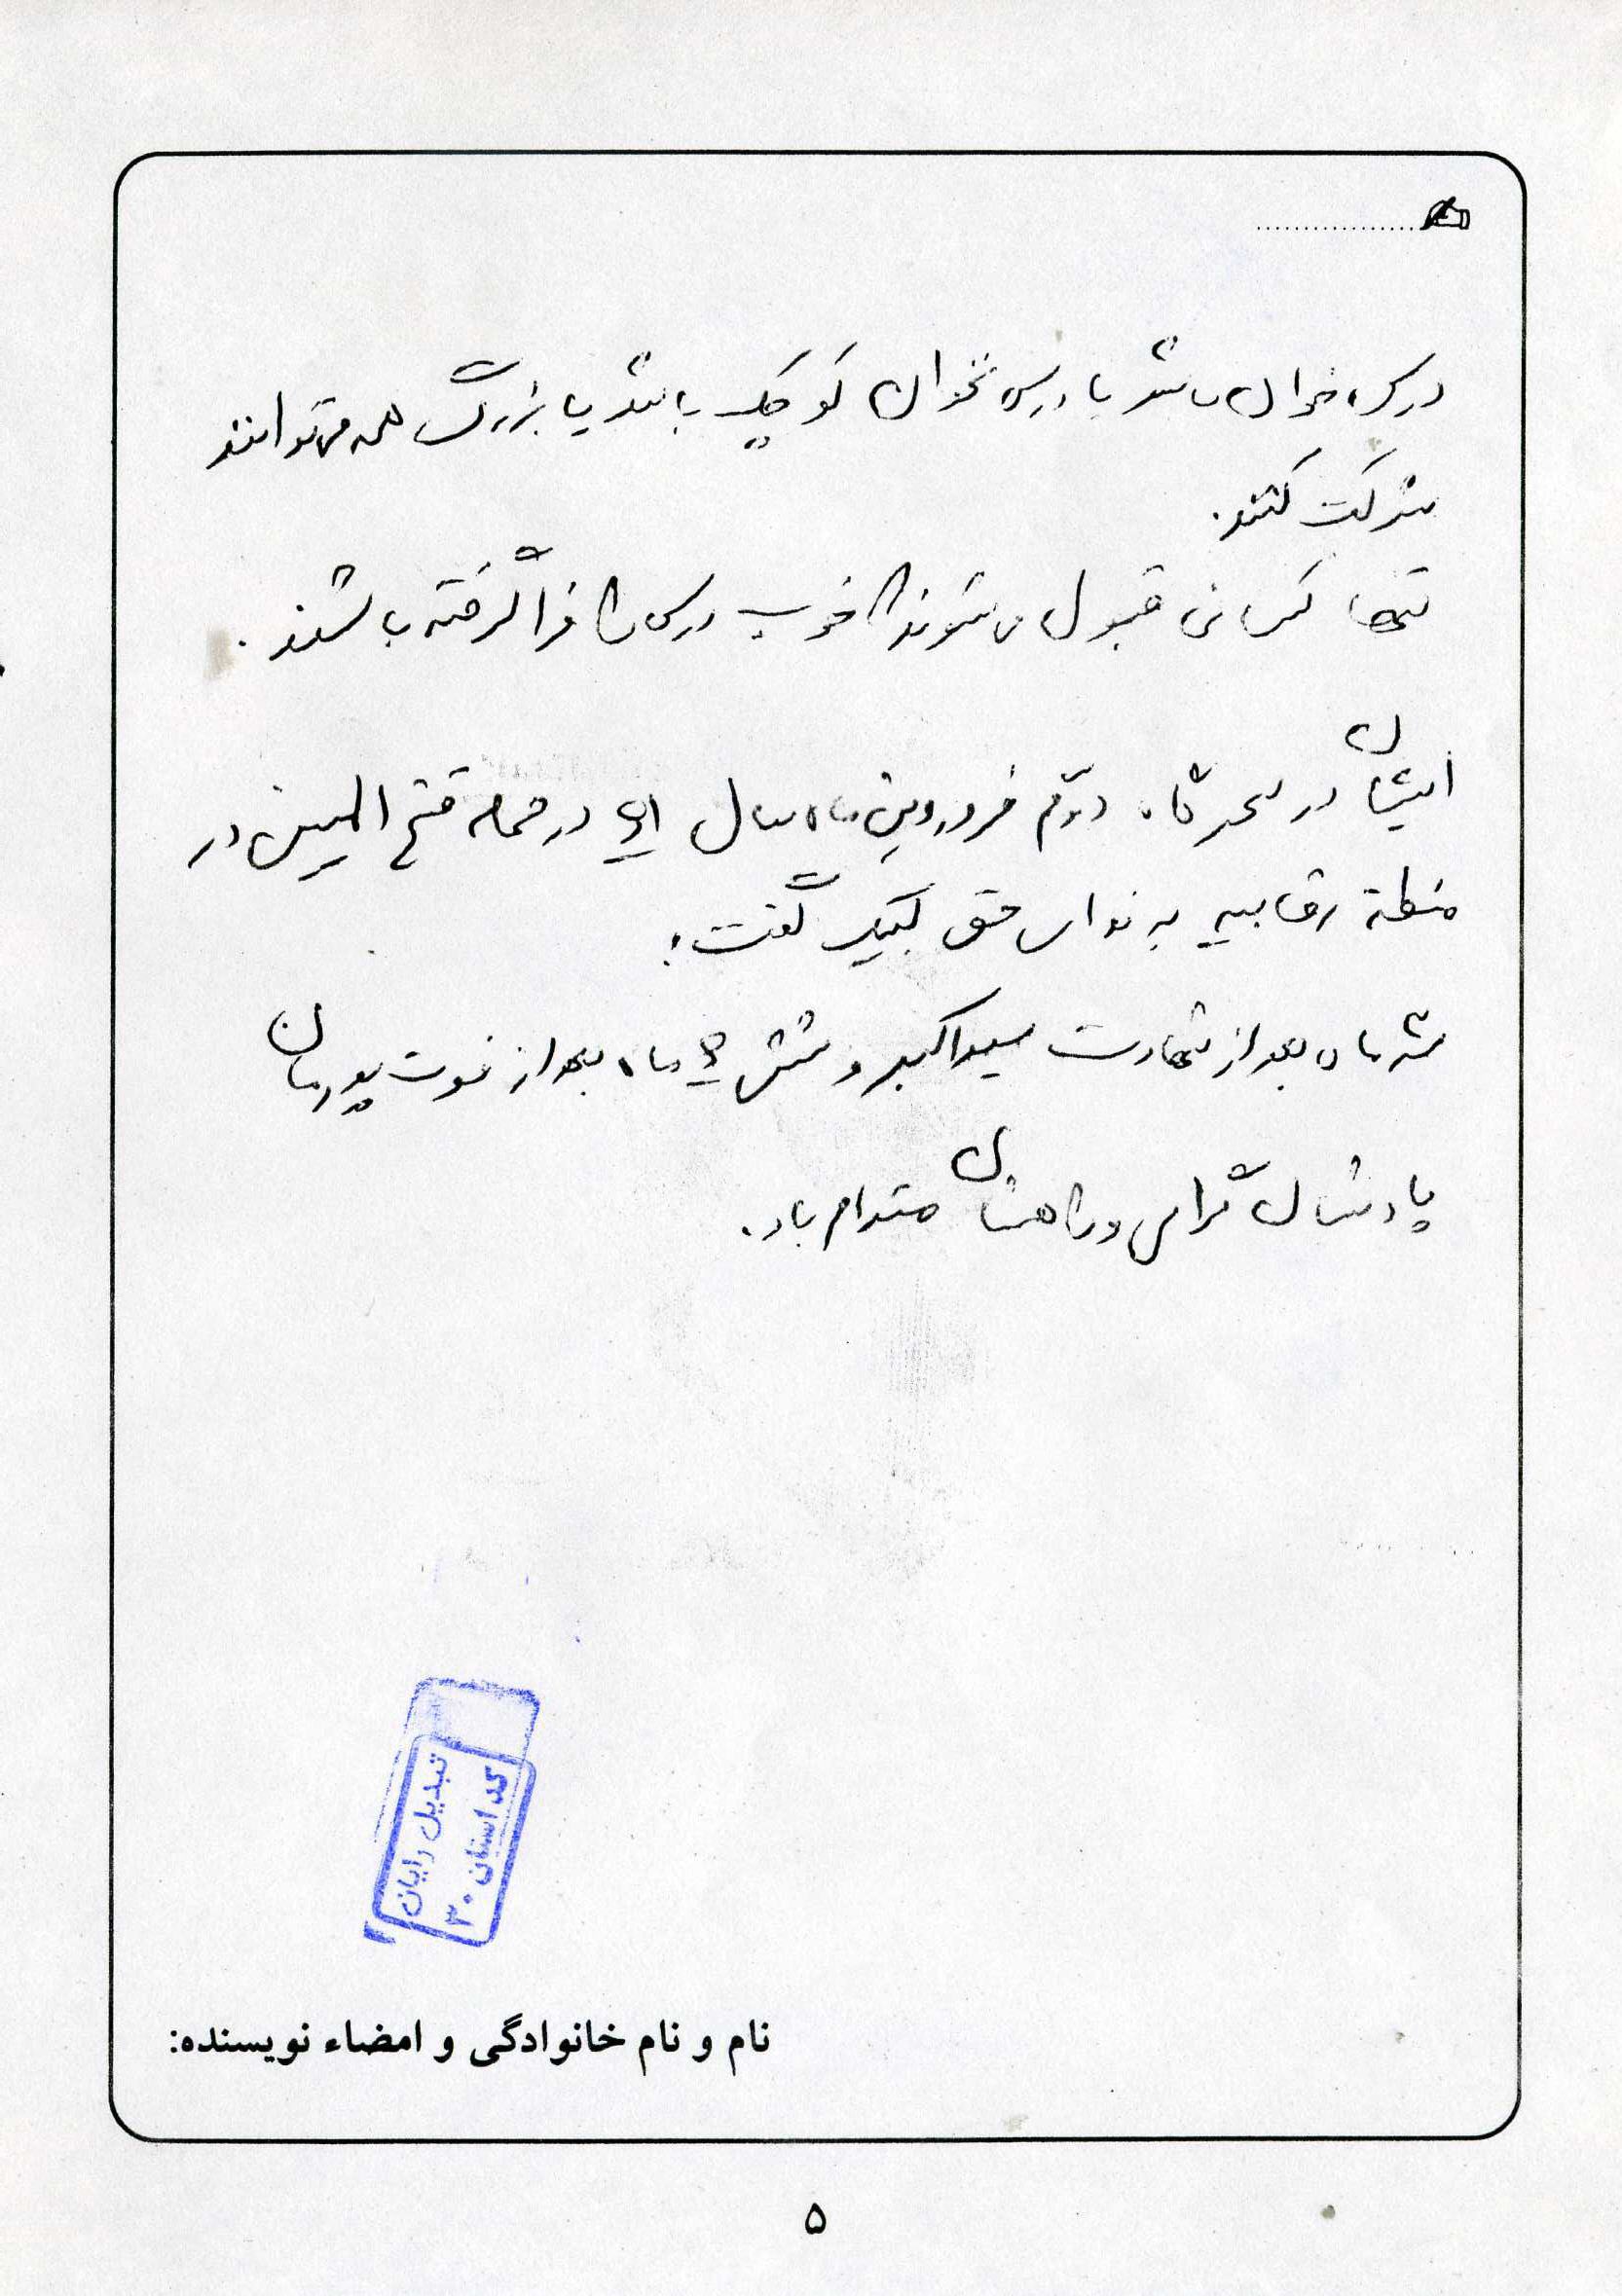 درس خوان باشد یا درس نخوان کوچک باشد یا بزرگ همه می توانند
شرکت کنند.
تنها کسانی قبول می شوند که خوب درس را فرا گرفته باشند.
ایشان در سحرگاه دوّم فروردین ماه سال ۶۱ در حمله فتح المبین در
منطقه رقابیه به ندای حق لبیک گفت.
سه ماه بعد از شهادت سیداکبر و شش ۶ ماه بعد از فوت پدرمان
یادشان گرامی و راهشان مستدام باد.
تبدیل رایان
کد استان ۳۰
نام و نام خانوادگی و امضاء نویسنده:
۵